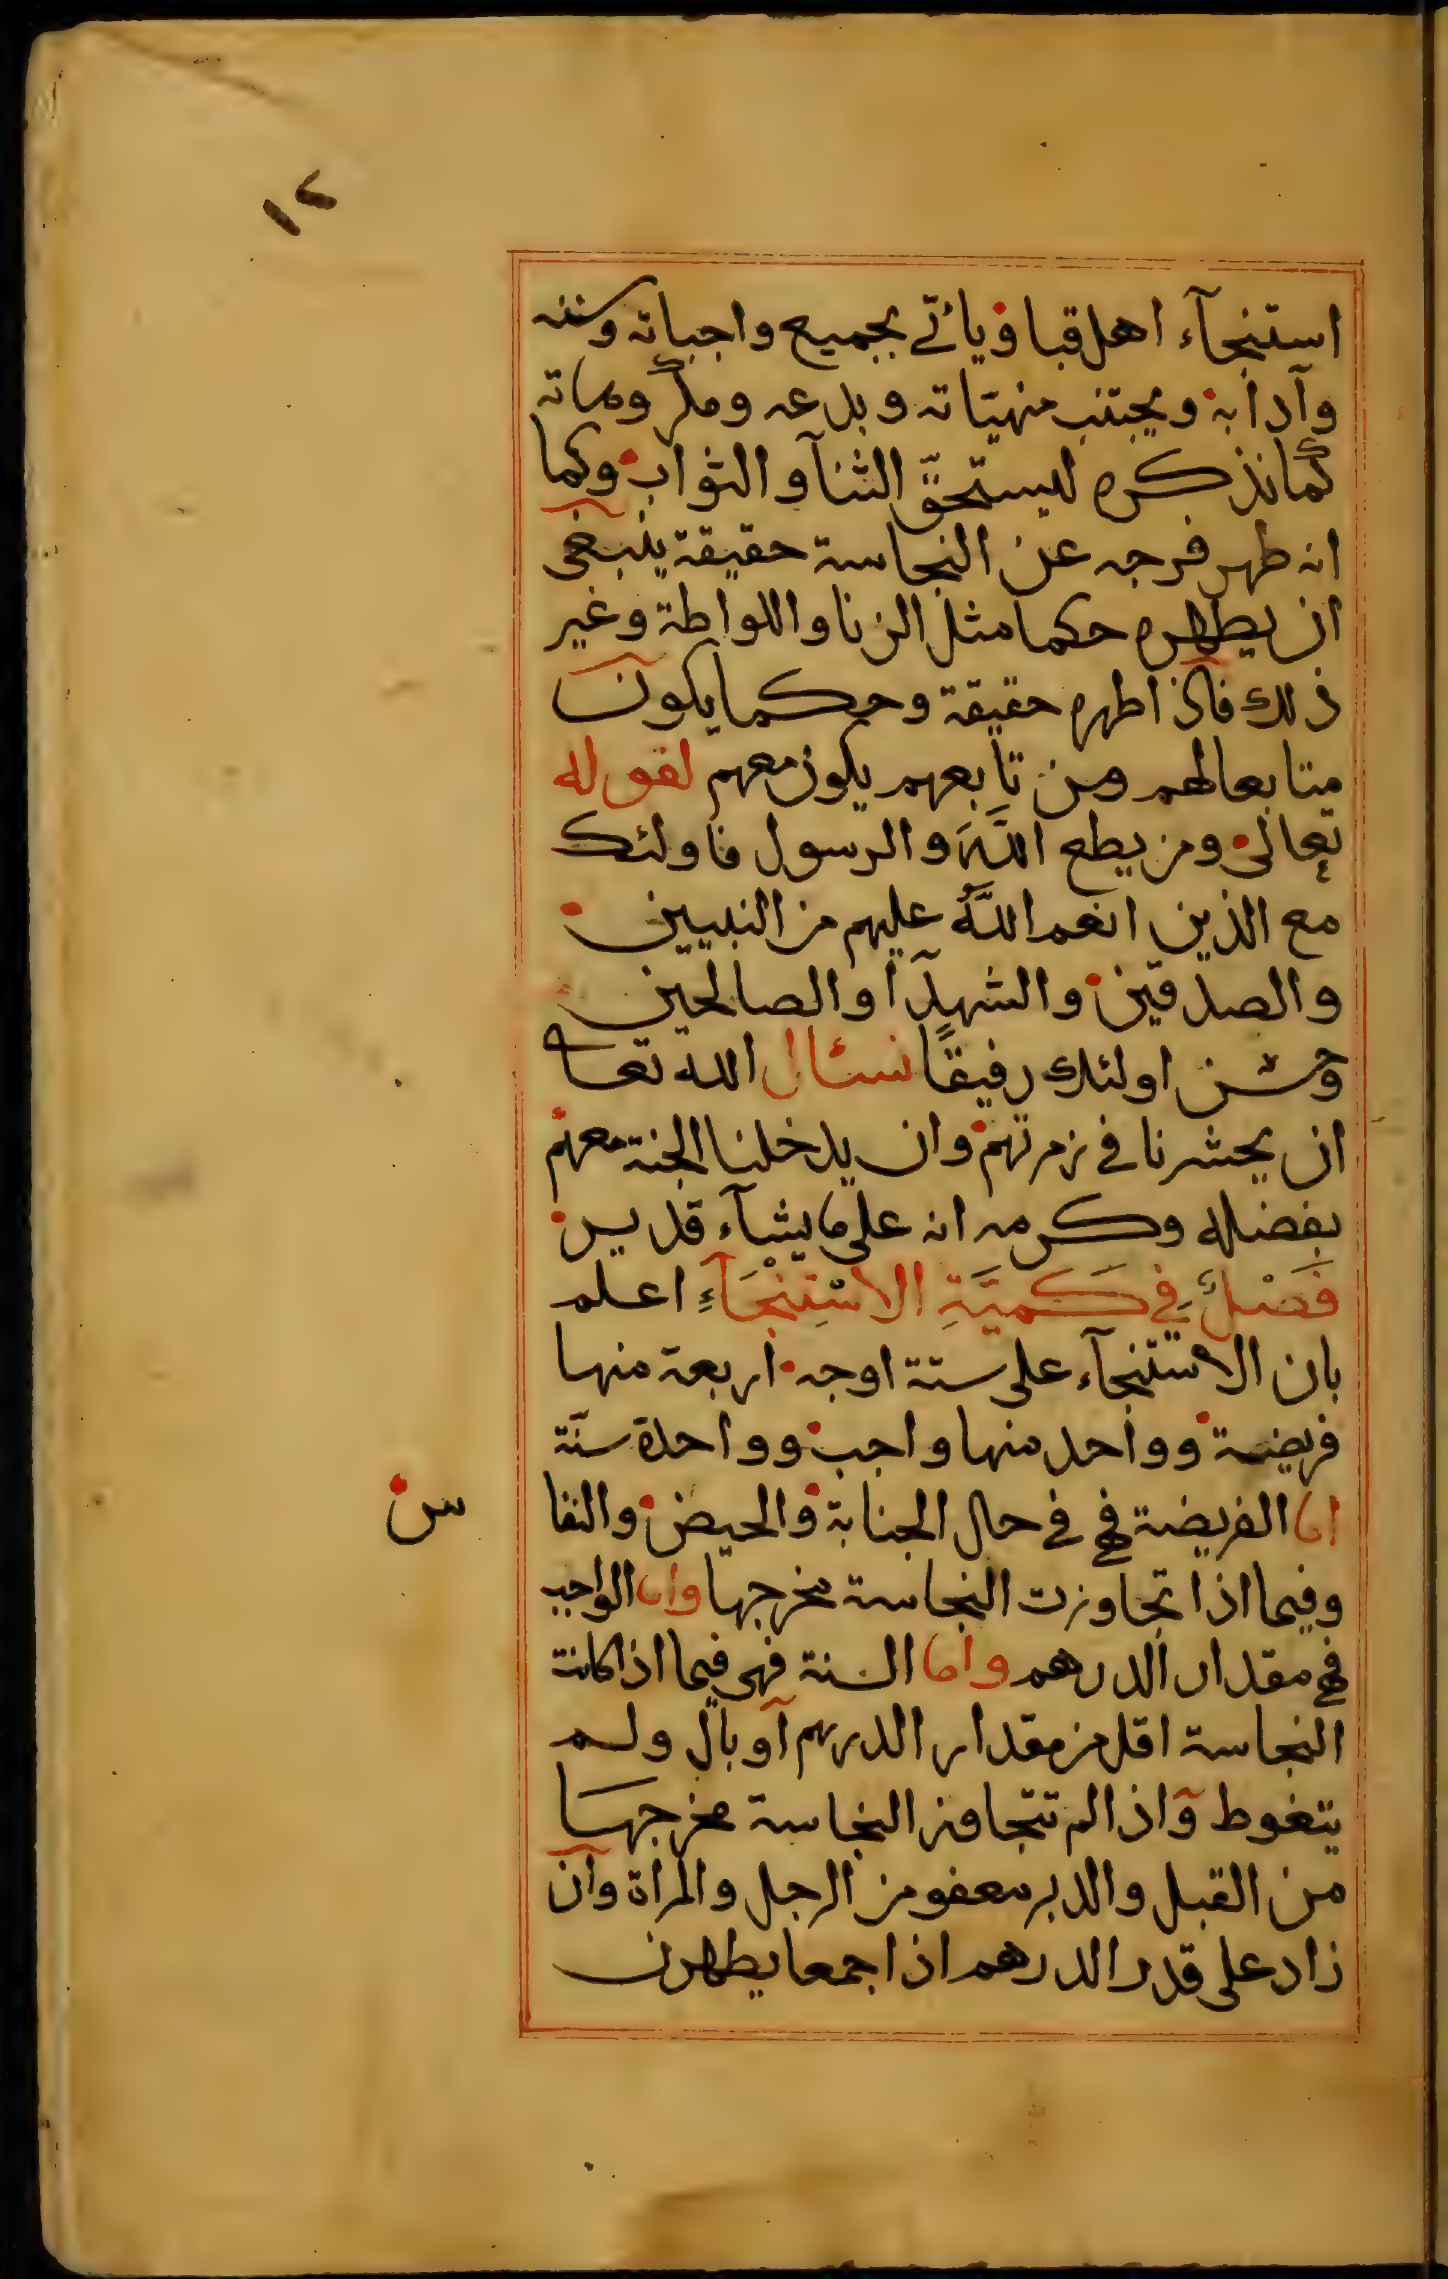 ١٢
استنجآء اهل قبا ويأتي بجميع واجباته وسننه
وآدابه ويجتنب منهيّاته وبدعه ومكروهاته
كما نذكره ليستحقّ الثنآ والثواب وكما
انه طهر فرجه عن النجاسة حقيقة ينبغى
ان يطهره حكما مثل الزنا واللواطة وغير
ذلك فاذا طهره حقيقة وحكما يكون
متابعا لهم ومن تابعهم يكون معهم لقوله
تعالى ومن يطع اللَّهَ والرسول فاولئك
مع الذين انعم اللَّهُ عليهم من النبيين
والصدقين والشهدآا والصالحين
وحسن اولئك رفيقًا نسئال الله تعا
ان يحشرنا في زمرتهم وان يدخلنا الجنة معهم
بفضله وكرمه انه على ما يشآء قدير
فَصْلٌ فِي كَمِيَّةِ الاسْتِنْجَآءِ اعلم
بان الاستنجآء على ستة اوجه اربعة منها
فريضة وواحد منها واجب وواحدة سنّة
اما الفريضة فهي في حال الجنابة والحيض والنفا
س
وفيما اذا تجاوزت النجاسة مخرجها واما الواجب
فهي مقدار الدرهم واما السنة فهي فيما اذا كانت
النجاسة اقل من مقدار الدرهم أو بال ولم
يتغوط واذا لم تتجاوز النجاسة مخرجها
من القبل والدبر معفو من الرجل والمراة وان
زاد على قدر الدرهم اذا جمعا يطهرن